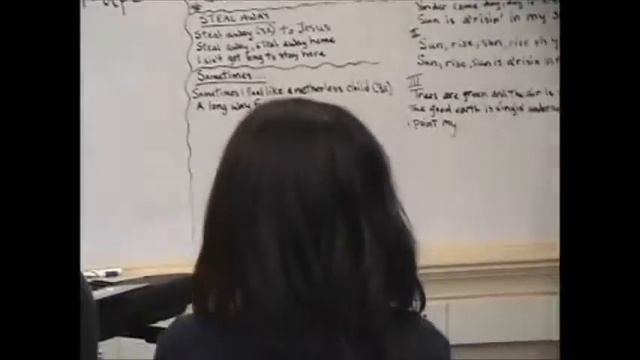 STEAL AWAY
Steal away (3x) to Jesus
Steal away, steal away home
I ain't got long to stay here
Sometimes...
Sometimes I feel like a motherless child (3x)
A long way
Yonder come day, day
Sun is a risin' in my
II
Sun, rise, sun, rise
Sun, rise, sun is a risin in
III
Trees are green and the air is
The good earth is singin
i point my